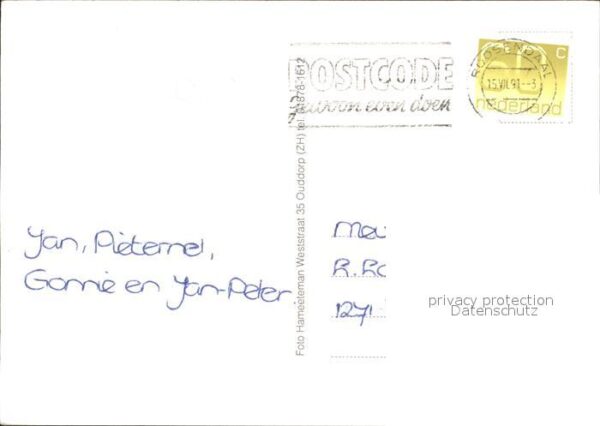 POSTCODE
gewoon even doen
ROOSENDAAL
15.VII.91.--3
C
nederland
Foto Hameeteman Weststraat 35 Ouddorp (ZH) tel. 01878-1612
Jan, Pieternel,
Gonnie en Jan-Peter.
Mev
R.Ro
1271
privacy protection
Datenschutz